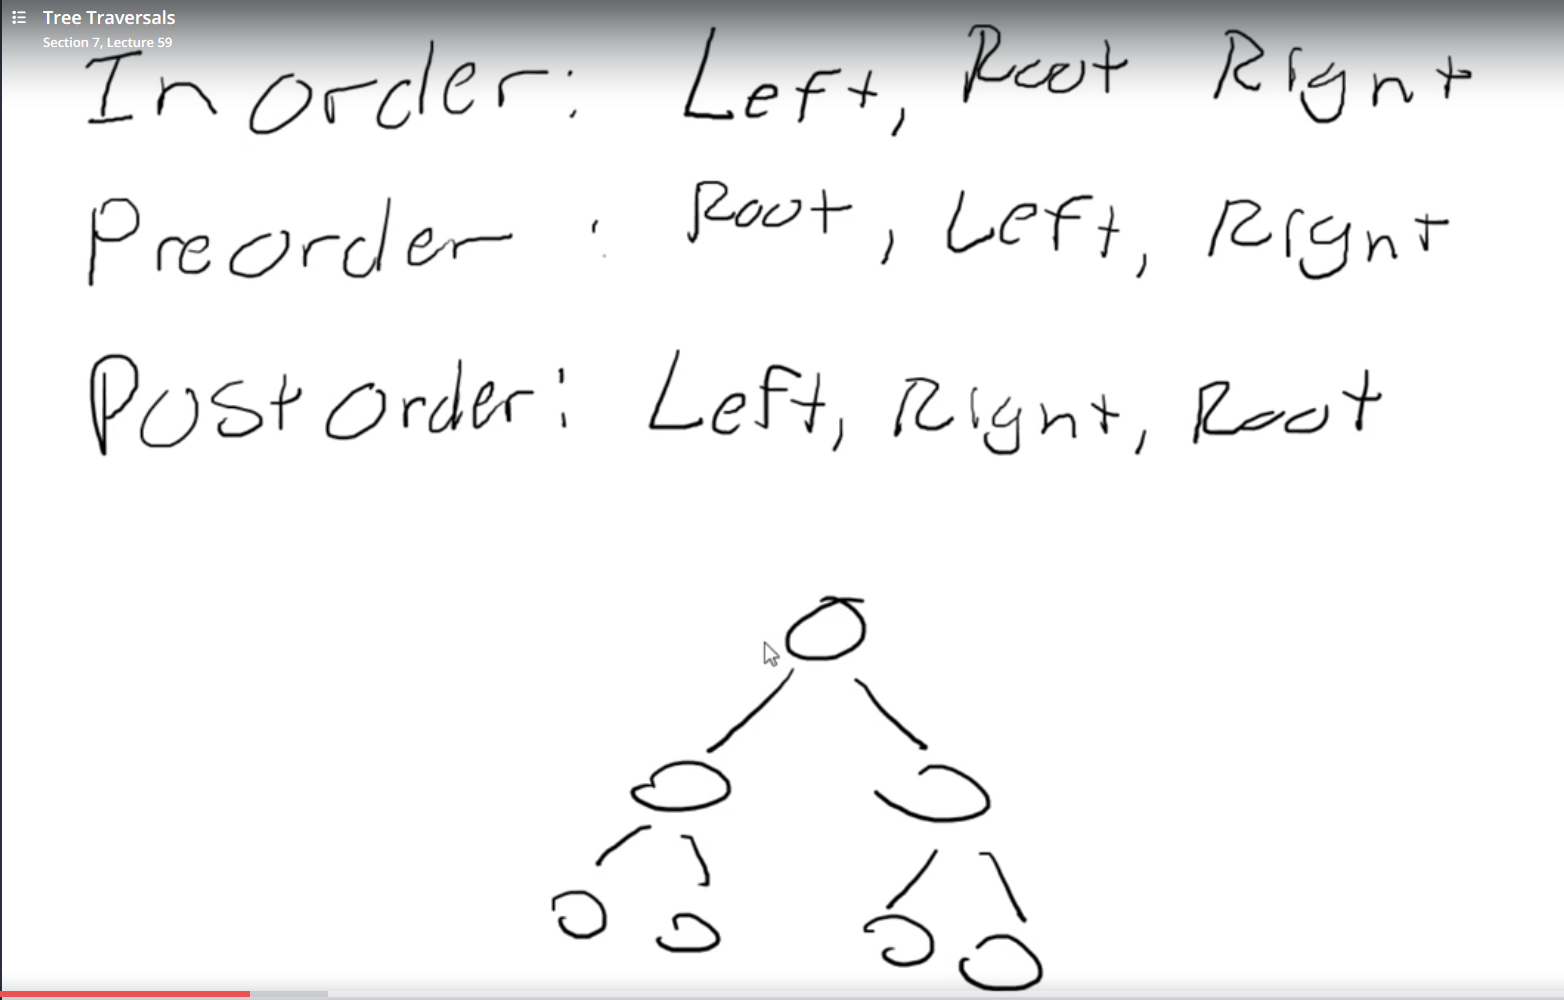 Tree Traversals
Section 7, Lecture 59
Inorder: Left, Root Right
Preorder : Root, Left, Right
Postorder: Left, Right, Root